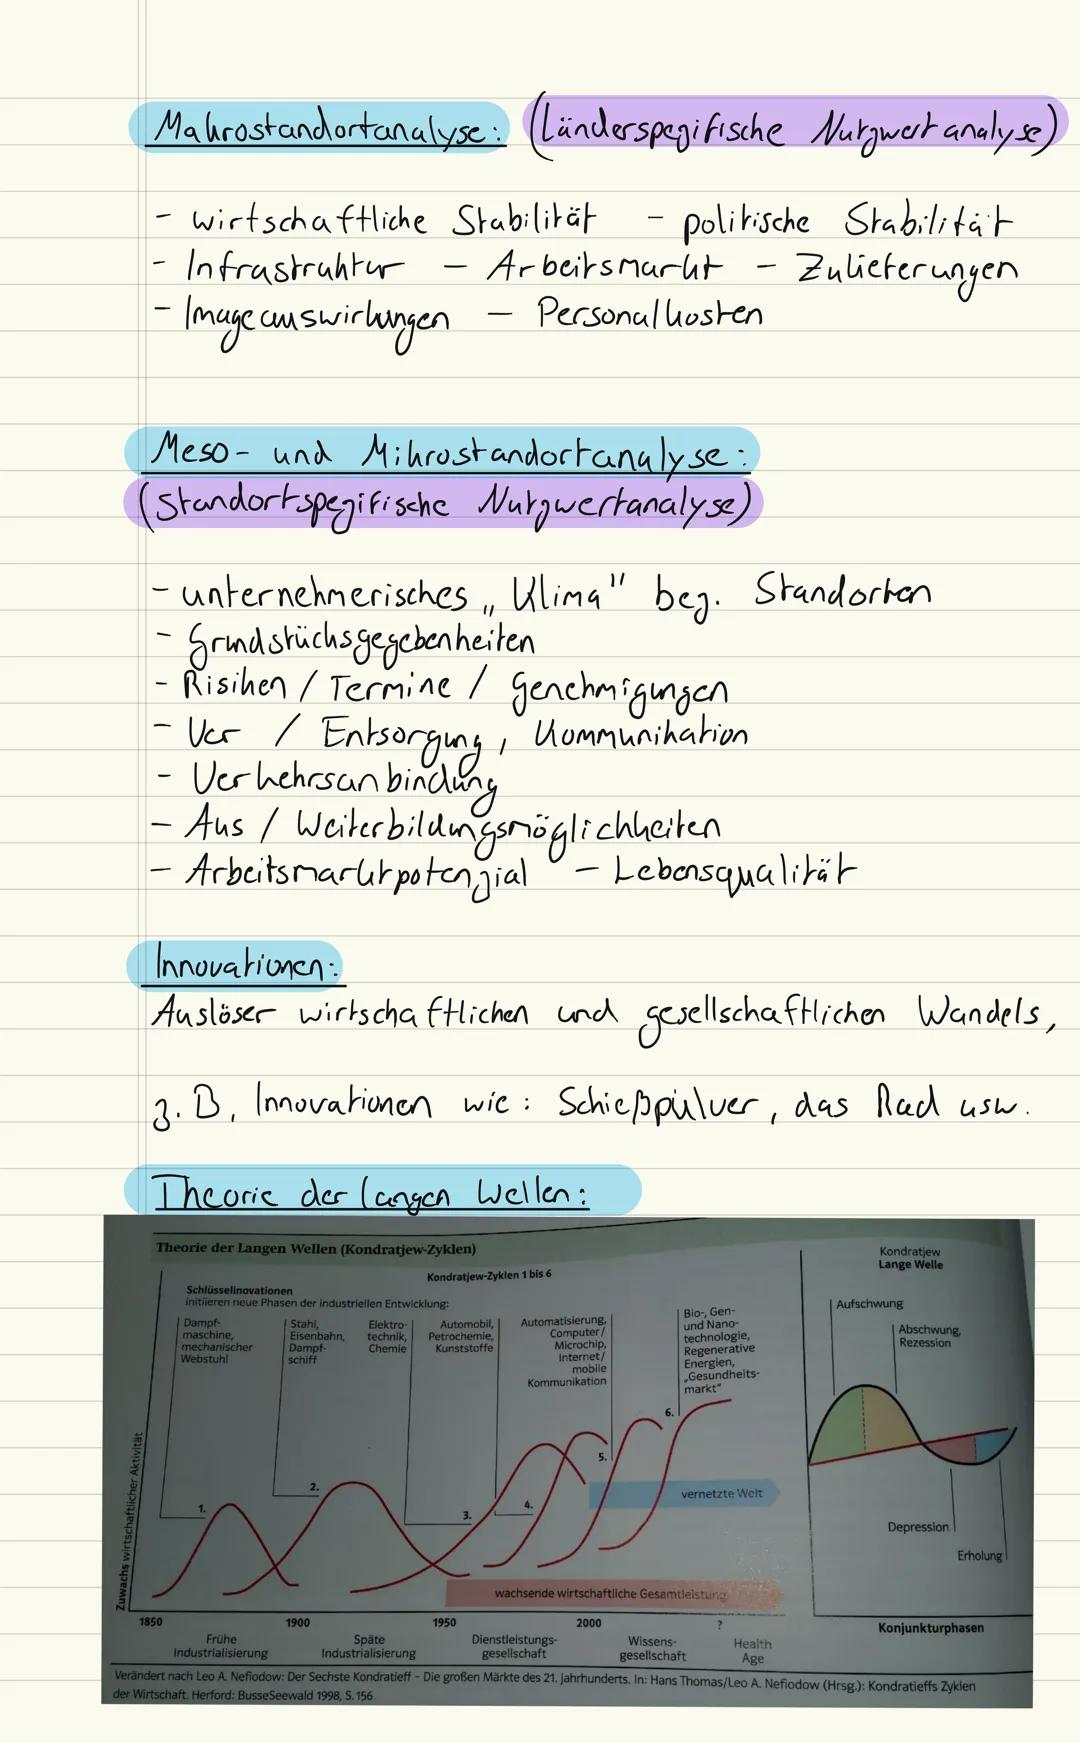 Makrostandortanalyse: (Länderspezifische Nutzwertanalyse)
- wirtschaftliche Stabilität - politische Stabilität
- Infrastruktur - Arbeitsmarkt - Zulieferungen
- Imageauswirkungen - Personalkosten
Meso- und Mikrostandortanalyse:
(Standortspezifische Nutzwertanalyse)
- unternehmerisches „Klima" bez. Standorten
- Grundstücksgegebenheiten
- Risiken / Termine / Genehmigungen
- Ver / Entsorgung, Kommunikation
- Verkehrsanbindung
- Aus / Weiterbildungsmöglichkeiten
- Arbeitsmarktpotenzial - Lebensqualität
Innovationen:
Auslöser wirtschaftlichen und gesellschaftlichen Wandels,
z. B. Innovationen wie: Schießpulver, das Rad usw.
Theorie der langen Wellen:
Theorie der Langen Wellen (Kondratjew-Zyklen)
Kondratjew-Zyklen 1 bis 6
Schlüsselinovationen
initiieren neue Phasen der industriellen Entwicklung:
Dampf-
maschine,
mechanischer
Webstuhl
Stahl,
Eisenbahn,
Dampf-
schiff
Elektro-
technik,
Chemie
Automobil,
Petrochemie,
Kunststoffe
Automatisierung,
Computer/
Microchip,
Internet/
mobile
Kommunikation
Bio-, Gen-
und Nano-
technologie,
Regenerative
Energien,
„Gesundheits-
markt"
1.
2.
3.
4.
5.
6.
vernetzte Welt
wachsende wirtschaftliche Gesamtleistung
Zuwachs wirtschaftlicher Aktivität
1850 1900 1950 2000 ?
Frühe
Industrialisierung
Späte
Industrialisierung
Dienstleistungs-
gesellschaft
Wissens-
gesellschaft
Health
Age
Kondratjew
Lange Welle
Aufschwung
Abschwung,
Rezession
Depression
Erholung
Konjunkturphasen
Verändert nach Leo A. Nefiodow: Der Sechste Kondratieff – Die großen Märkte des 21. Jahrhunderts. In: Hans Thomas/Leo A. Nefiodow (Hrsg.): Kondratieffs Zyklen
der Wirtschaft. Herford: BusseSeewald 1998, S. 156